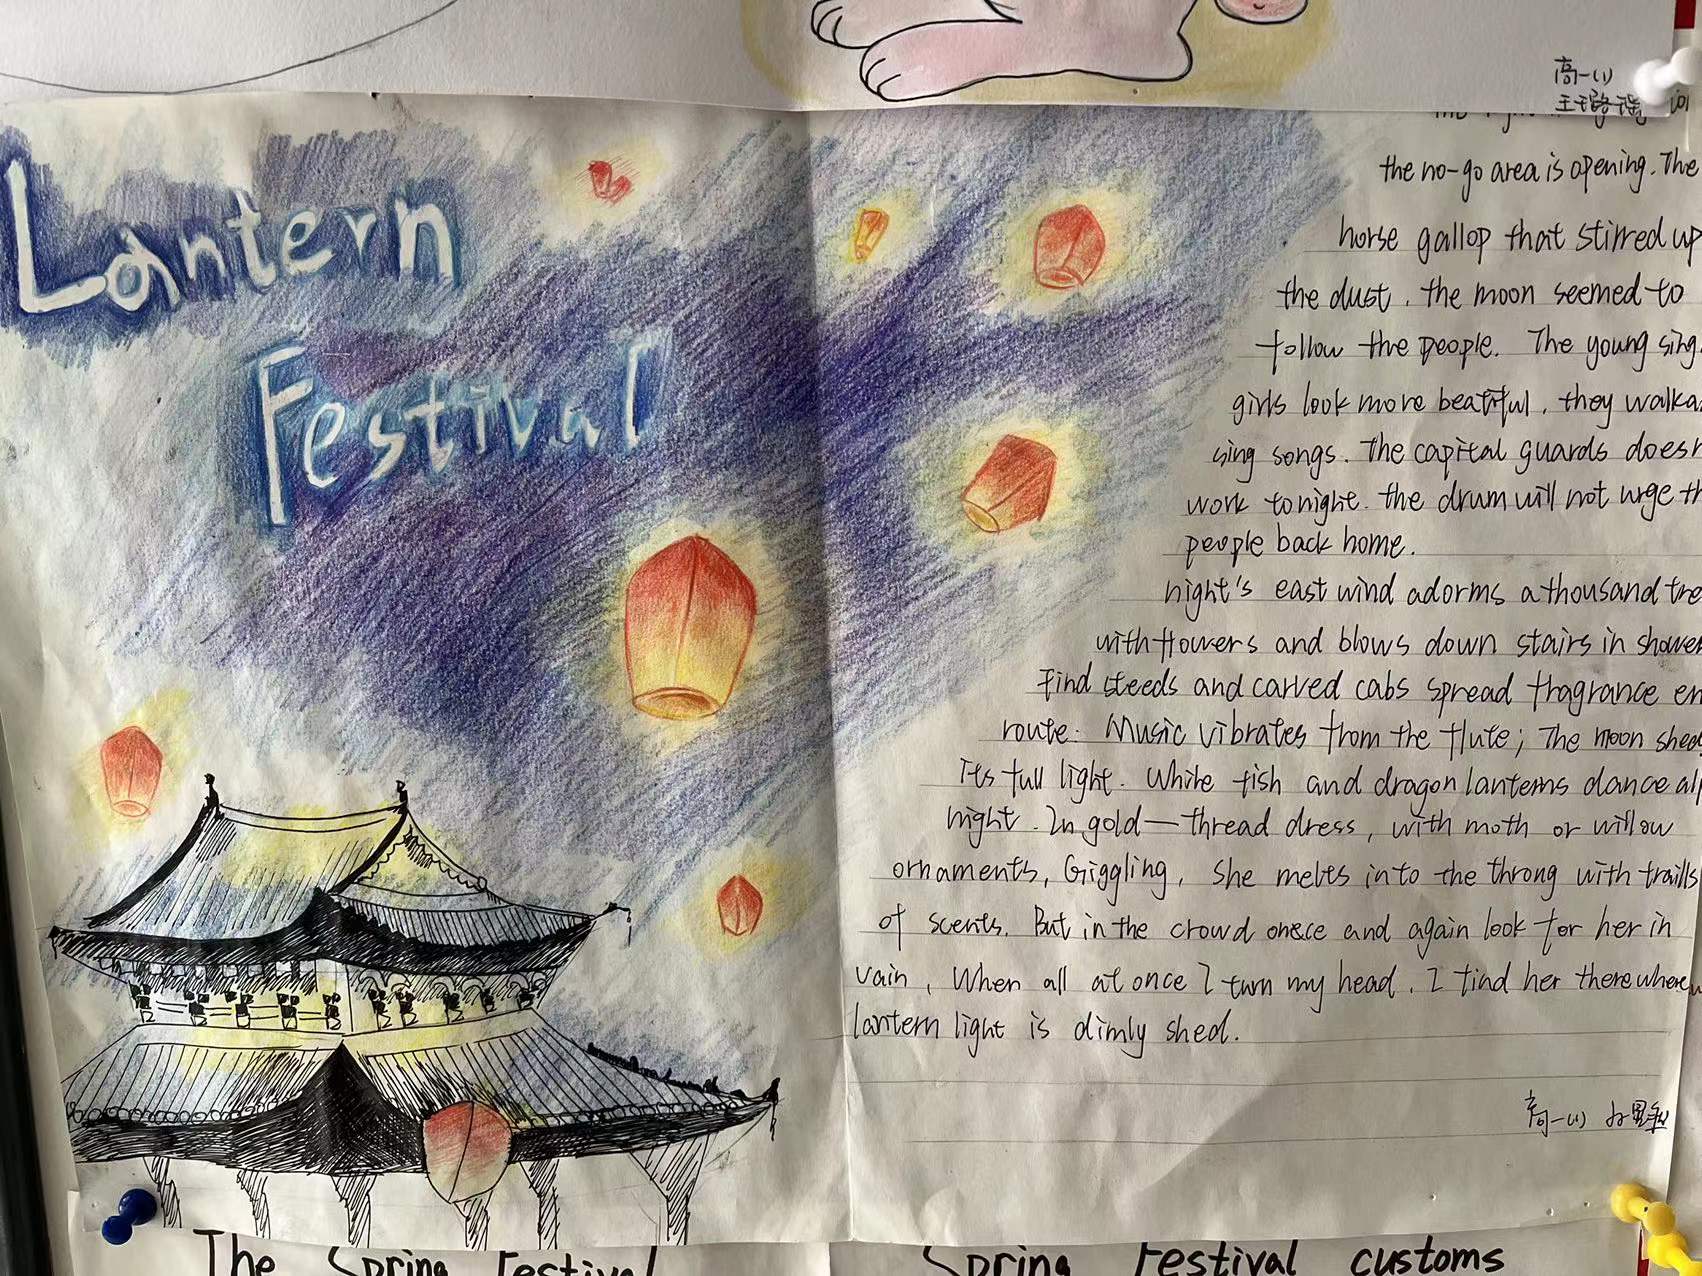 高一(1)
Lantern
Festival
the no-go area is opening. The
horse gallop that stirred up
the dust, the moon seemed to
follow the people. The young sing
girls look more beatiful, they walka
sing songs. The capital guards doesn
work tonight. the drum will not urge th
people back home.
night's east wind adorms a thousand tre
with flowers and blows down stairs in shower
Find steeds and carved cabs spread fragrance en
route. Music vibrates from the flute; The moon shed
its full light. White fish and dragon lanterns dance all
night. In gold—thread dress, with moth or willow
ornaments, Giggling, She melts into the throng with traills
of scents. But in the crowd once and again look for her in
vain, When all at once I turn my head, I find her there where
lantern light is dimly shed.
高一(1)
The Spring Festival
Spring Festival customs